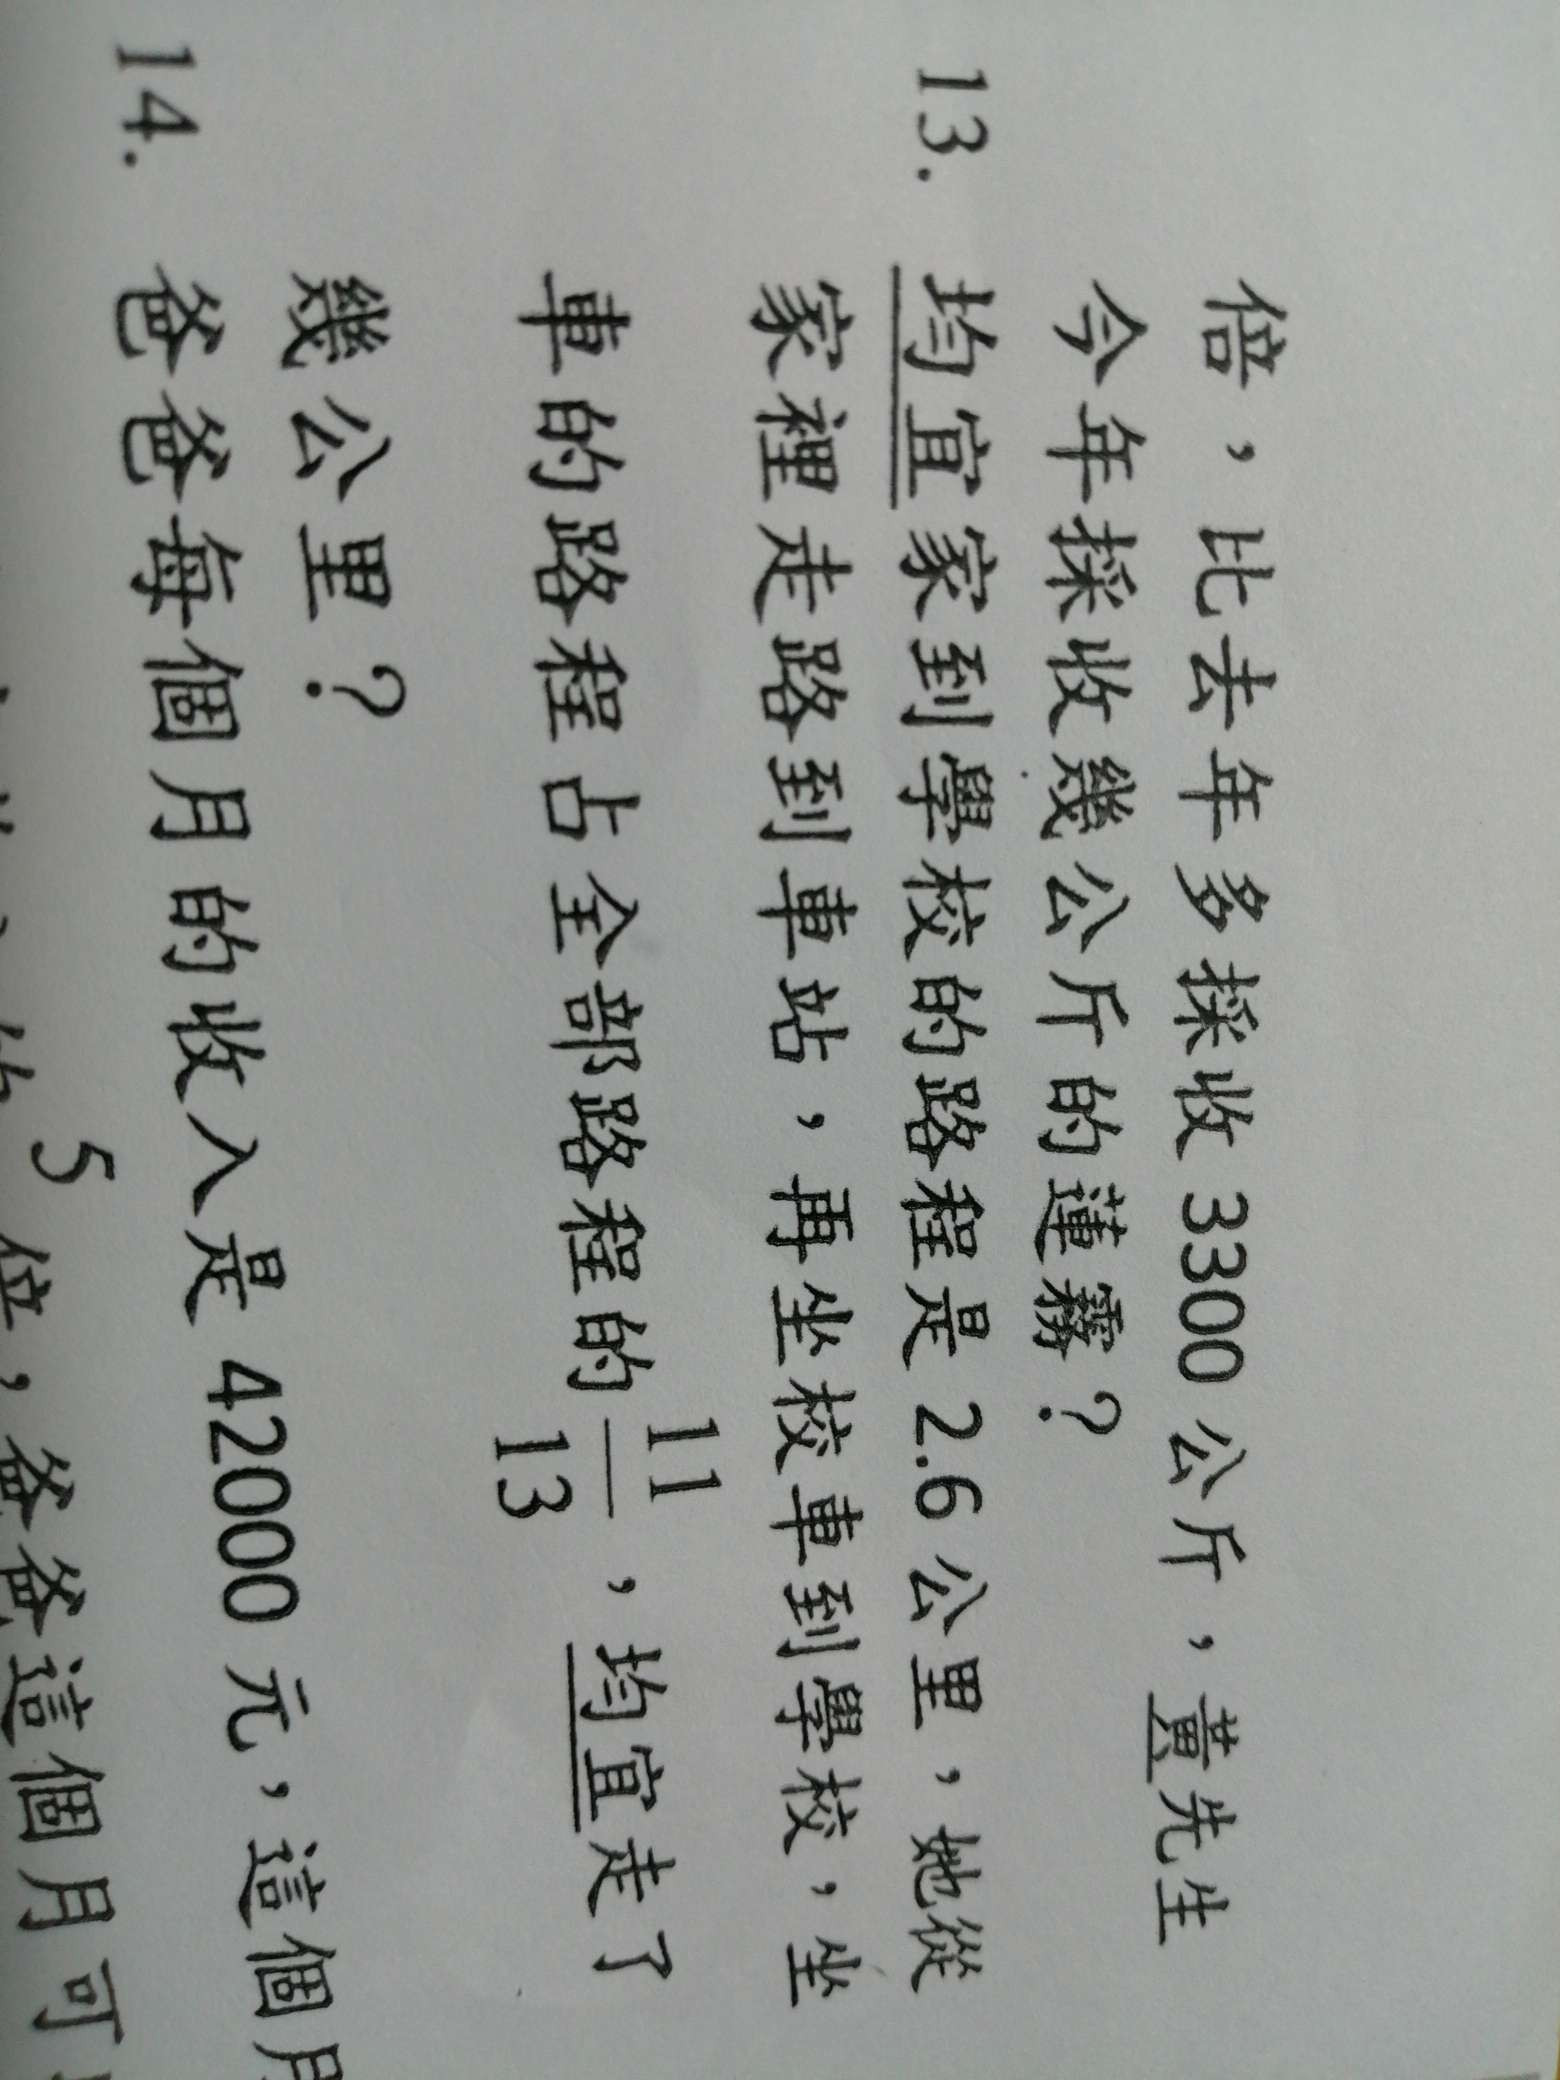 倍，比去年多採收 3300 公斤，黃先生
今年採收幾公斤的蓮霧？
13. 均宜家到學校的路程是 2.6 公里，她從
家裡走路到車站，再坐校車到學校，坐
車的路程占全部路程的 11/13，均宜走了
幾公里？
14. 爸爸每個月的收入是 42000 元，這個月
5 倍，爸爸這個月可